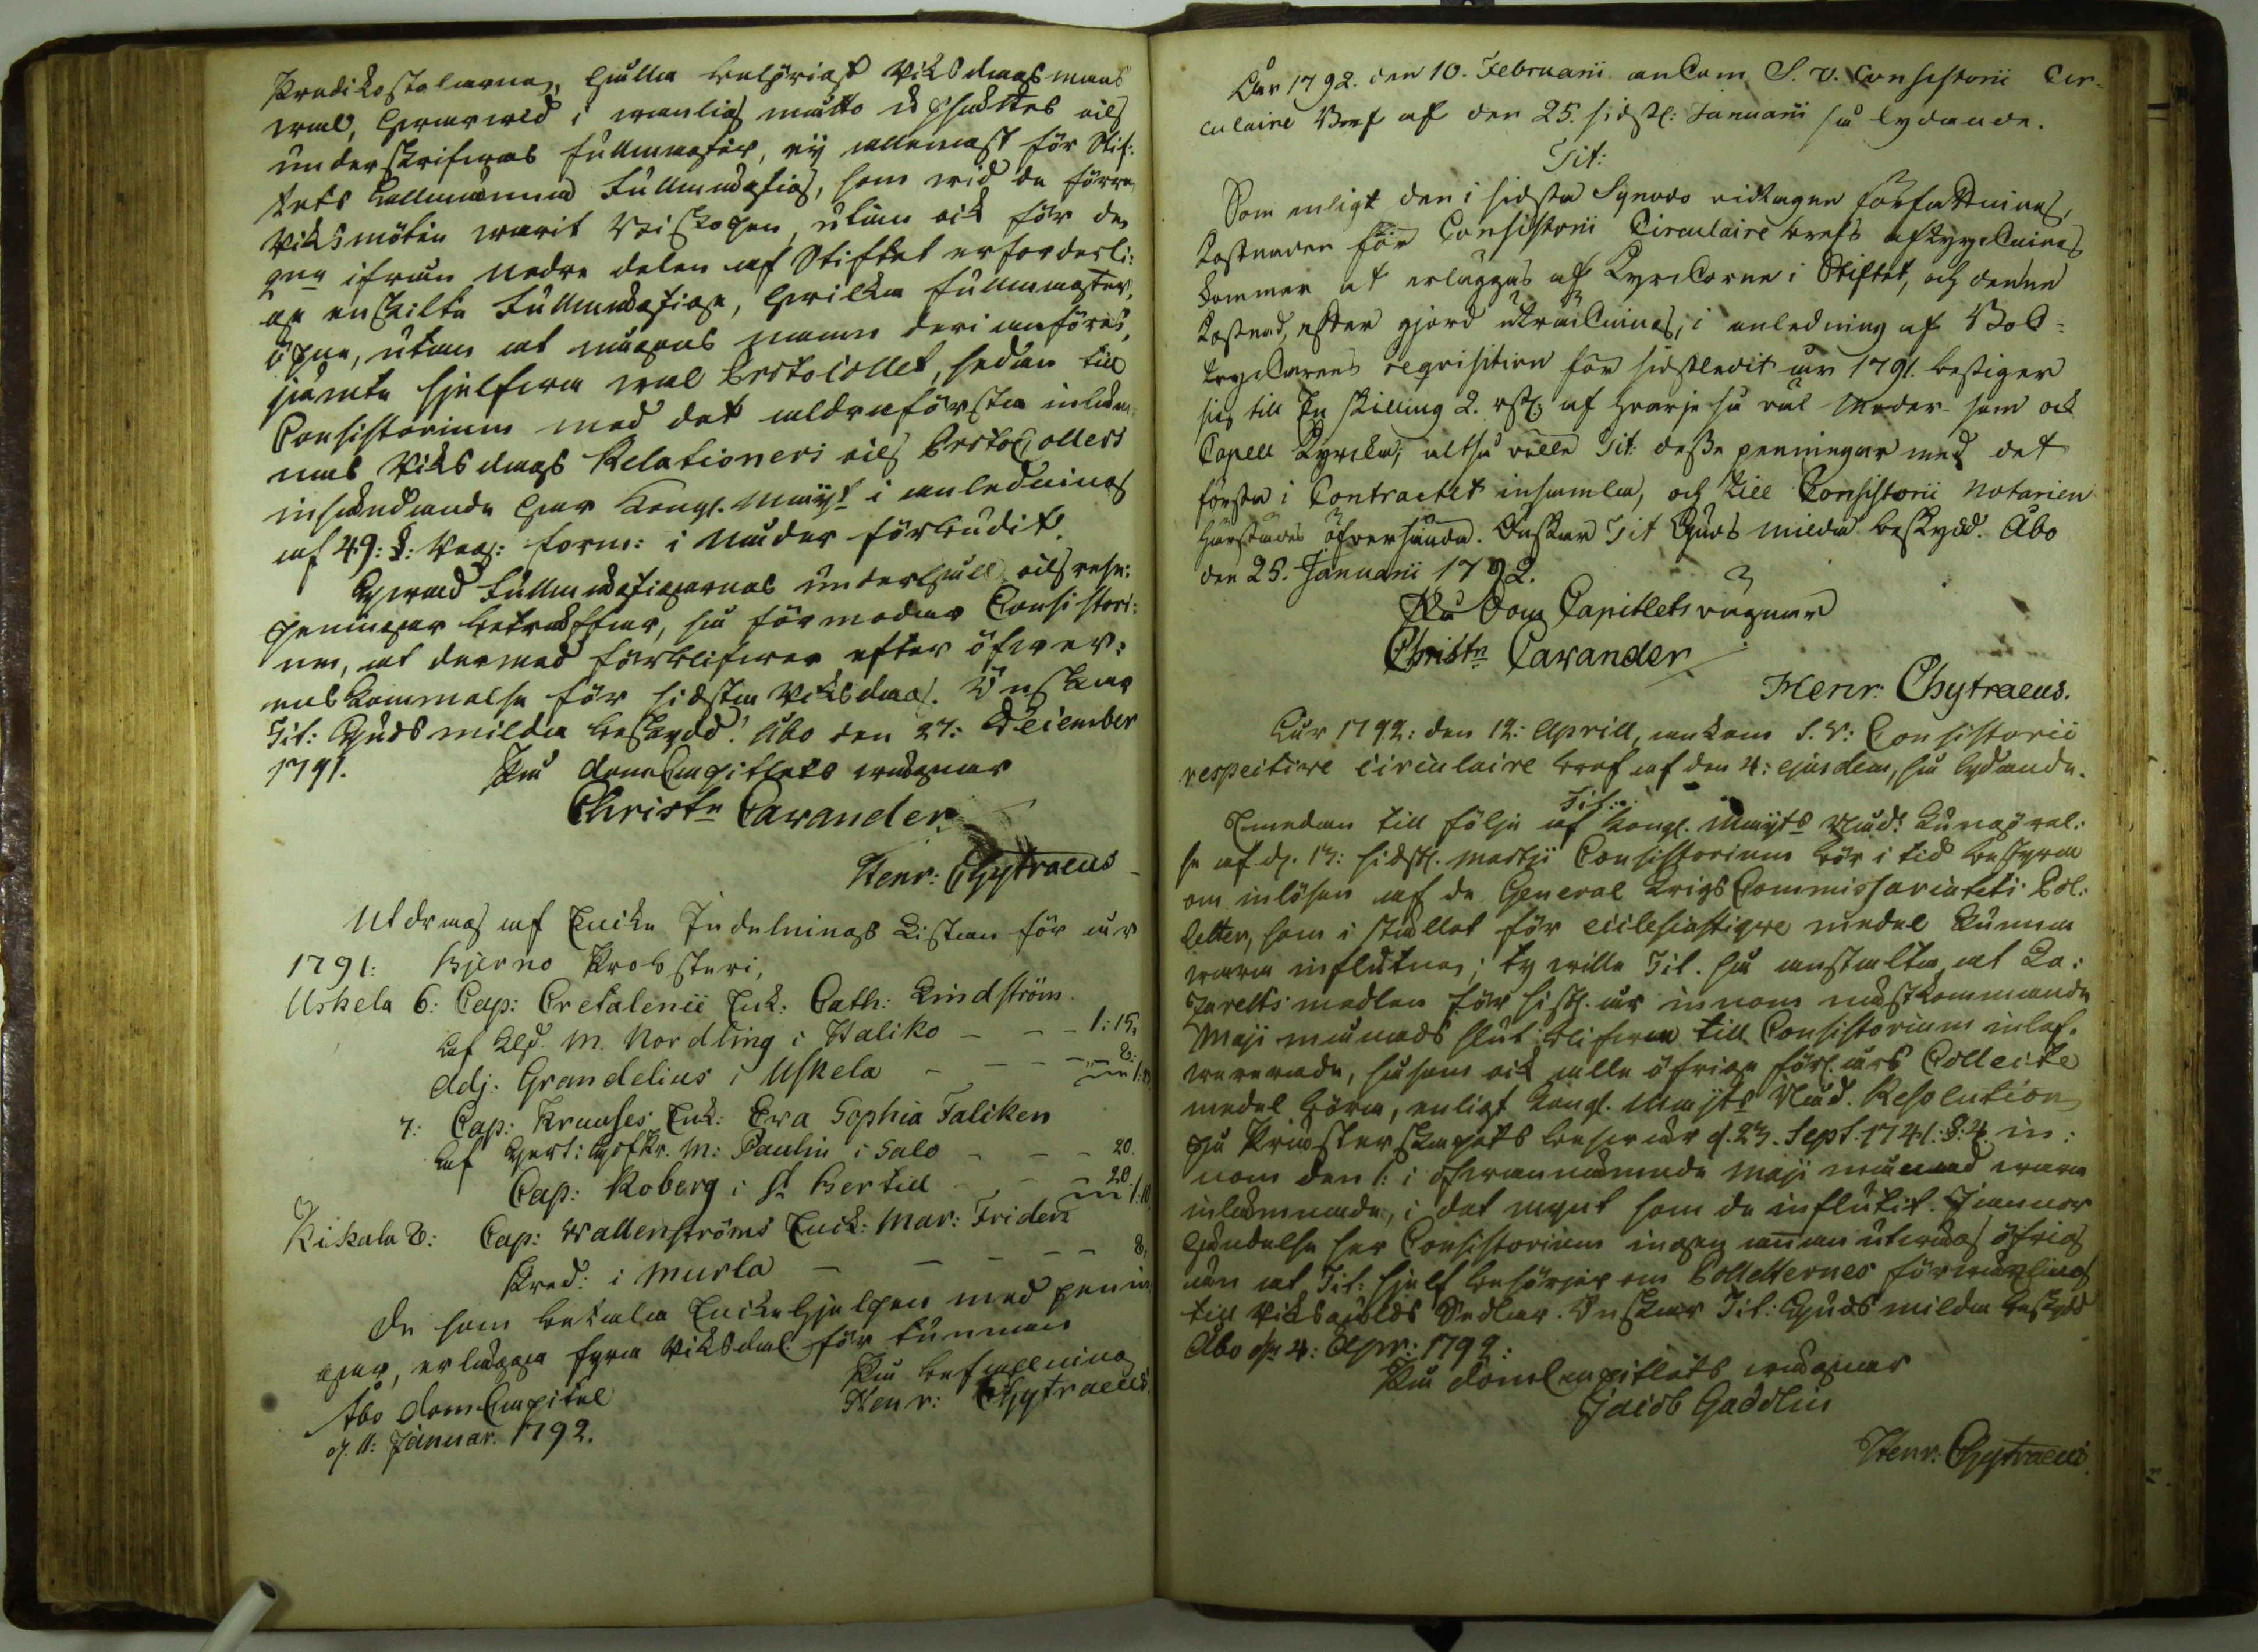 Predikostolarna, hålla behörigt Riksdagsmans
wal, hwarwid i wanlig måtto upsättes och
underskrifwas fullmagter, ej allenast för Stif-
tets allmänna Fullmägtig, som wid de förra
Riksmöten warit Biskopen, utan ock för de
ifrån nedre delen af Stiftet erforderli-
ge enskilta Fullmägtige, hwilka fullmagter,
öpne, utan at någons namn deri införes,
jämte sjelfwa wal Protocollet, sedan till
Consistorium med det aldraförsta inläm-
nas Riksdags Relationers och Protocollers
insändande har Kongl. Maijt i anledning
af 49: §: Reg: form: i Nåder förbudit.
Hwad Fullmägtigarnas underhåll och rese-
peningar beträffar, så förmodar Consistori-
um, at dermed förblifwer efter öfwer-
enskommelse för sidsta Riksdag. Önskar
Tit: Guds milda beskydd! Åbo den 27: December
1791. På DomCapitlets wägnar
Christn Cavander
Henr: Chytraeus
Utdrag af Encke Indelnings Listan för år
1791: Bjerno Probsteri,
Uskela 6: Cap: Cretalenii Enk: Cath: Lindström.
af M. Nordling i Haliko - - - 1:15.
Adj: Grandelius i Uskela - - - -
7: Cap: Krauses Enk: Eva Sophia Taliken
af M: Paulin i Salo - - - 20.
Cap: Roberg i St Bertill - - 20.
Kikala 8: Cap: Wallenströms Enck: Mar: Friden
Pred: i Murla - - - - - 8.
De som betala Enckehjelpen med penin-
gar, erlägga fyra Riksdal: för tunnan
Åbo DomCapitel På befallning
d. 11: Januar. 1792. Henr: Chytraeus.
Åhr 1792. den 10. Februarii ankom S. V. Consistorii Cir-
culaire Bref af den 25. sidstl: Januarii så lydande.
Tit:
Som enligt den i sidsta Synodo vidtagne författning,
kostnaden för Consistorii Circulaire brefs aftryckning
kommer at erläggas af Kyrckorne i Stiftet, och denne
kostnad, efter gjord uträckning, i anledning af Bok-
tryckarens reqvisition för sidstledit år 1791. bestiger
sig till En skilling 2. rst: af hvarje så väl Moder- som ock
Capell Kyrcka; altså ville Tit: desse penningar med det
första i Contractet insamla, och till Consistorii Notarien
härstädes öfversända. Önskar Tit Guds milda beskydd. Åbo
den 25. Januarii 1792.
På Dom Capitlets vägnar
Christn Cavander
Henr: Chytraeus.
Åhr 1792: den 12: Aprill, ankom S. V: Consistorii
respective circulaire bref af den 4: ejusdem, så lydande.
Tit:
Emedan till följe af Kongl. Maijts Nåd: Kungörel-
se af d. 13: sidstl. Martii Consistorium bör i tid bestyra
om inlösen af de General Krigs Commissariatets Pol-
letter, som i stället för ecclesiastique medel kunna
wara influtne; ty wille Tit. så anstalta at La-
zaretts medlen för sistl. år innom nästkommande
Maji månads slut blifwa till Consistorium inlef-
wererade, såsom ock alle öfrige förl. års Collecte
medel böra, enligt Kongl. Maijts Nåd. Resolution
på Prästerskapets beswär d. 23. Sept: 1741: §: 4. in-
nom den 1: i ofwannämnde Maji månad wara
inlämnade, i det mynt som de influtit. I annor
händelse ser Consistorium ingen annan utwäg öfrig
än at Tit: sjelf besörjer om Polletternes förwexling
till Riksgälds Sedlar. Önskar Tit: Guds milda beskydd
Åbo d. 4: Apr: 1792:
På DomCapitlets wägnar
Jacob Gadolin
Henr: Chytraeus.